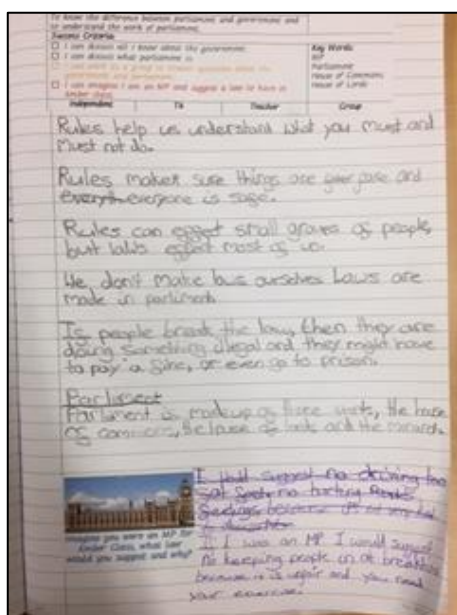 To know the difference between parliament and government and
to understand the work of parliament.
Success Criteria:
I can discuss all I know about the government.
I can discuss what parliament is.
I can work in a group to answer questions about the
government and parliament.
I can imagine I am an MP and suggest a law to have in
Ember Class.
Key Words:
MP
Parliament
House of Commons
House of Lords
Independent TA Teacher Group
Rules help us understand what you must and
must not do.
Rules makes sure things are and
everyone is safe.
Rules can effect small groups of people,
but laws effect most of us.
We don't make laws ourselves Laws are
made in parliment.
If people break the law, then they are
doing something illegal and they might have
to pay a fine, or even go to prison.
Parliment
Parliment is made up of three parts, the house
of commons, the house of lords and the monarch.
I suggest no driving too
no hurting Peoples
feelings
Imagine you were an MP for
Ember Class, what law
would you suggest and why?
If I was an MP I would suggest
no keeping people in at breaktime
because it is unfair and you need
your exercise.